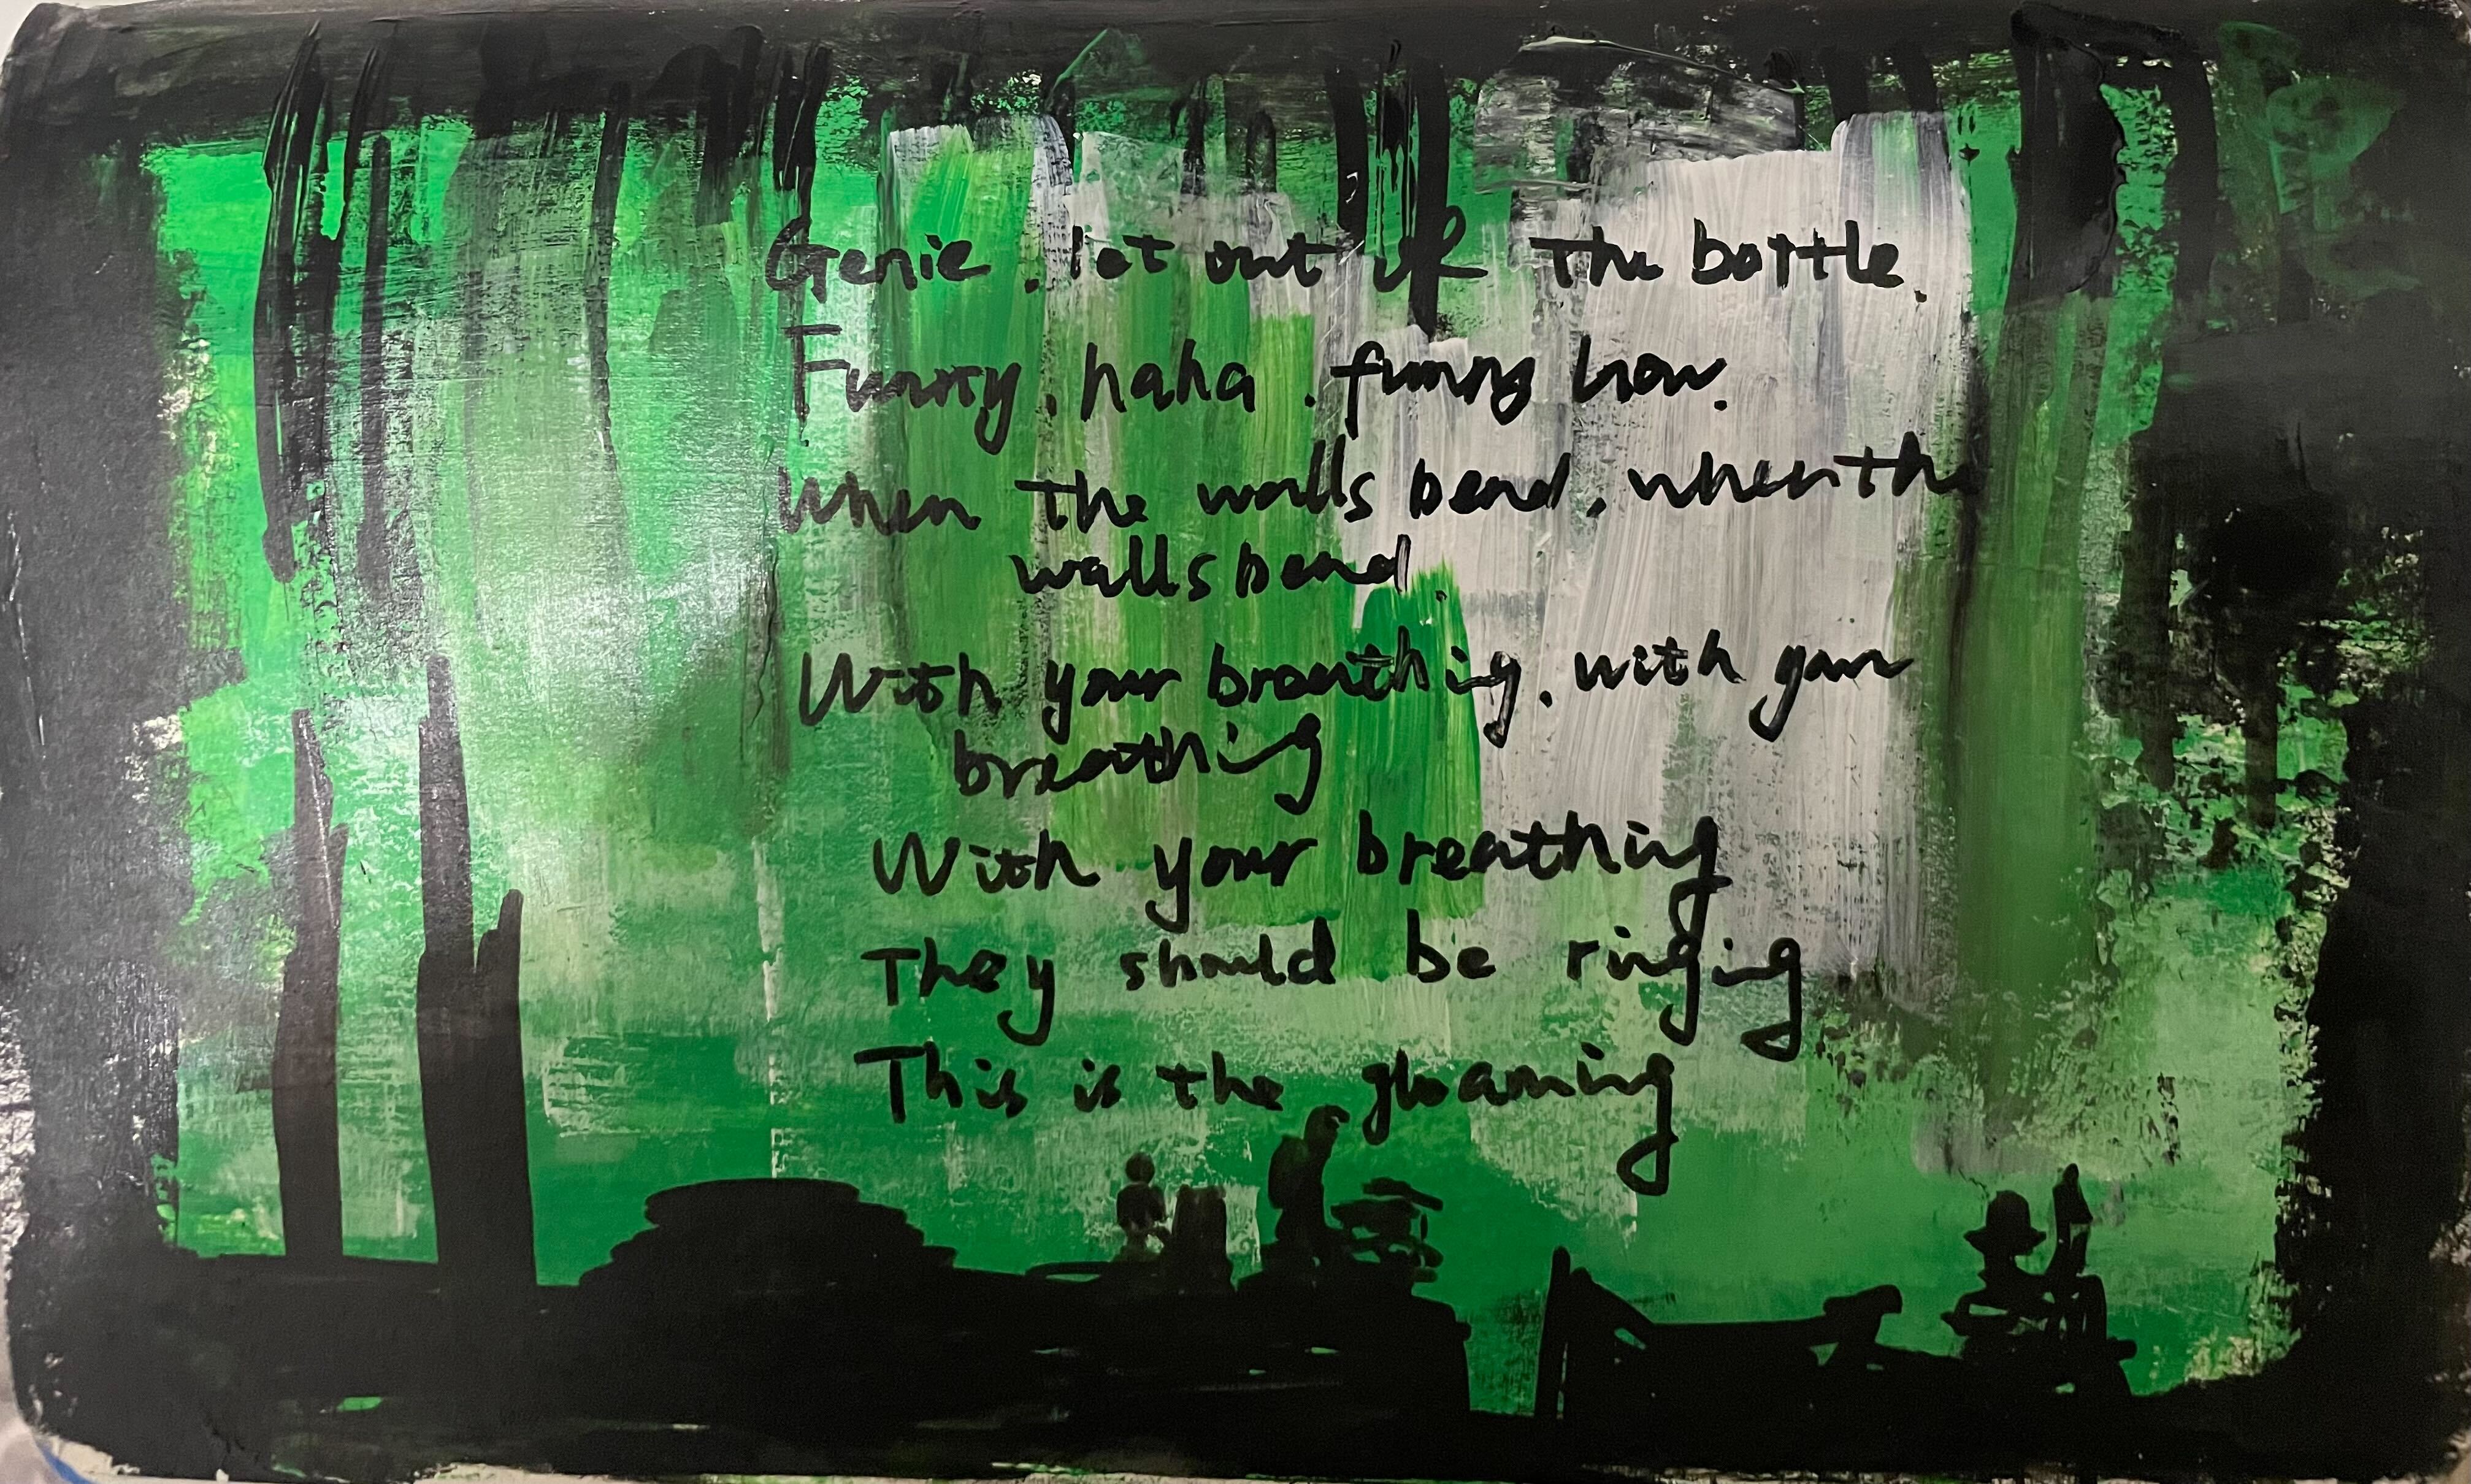 Genie, let out of the bottle.
Funny, haha, funny how.
When the walls bend, when the
walls bend.
With your breathing, with your
breathing
With your breathing
They should be ringing
This is the gloaming